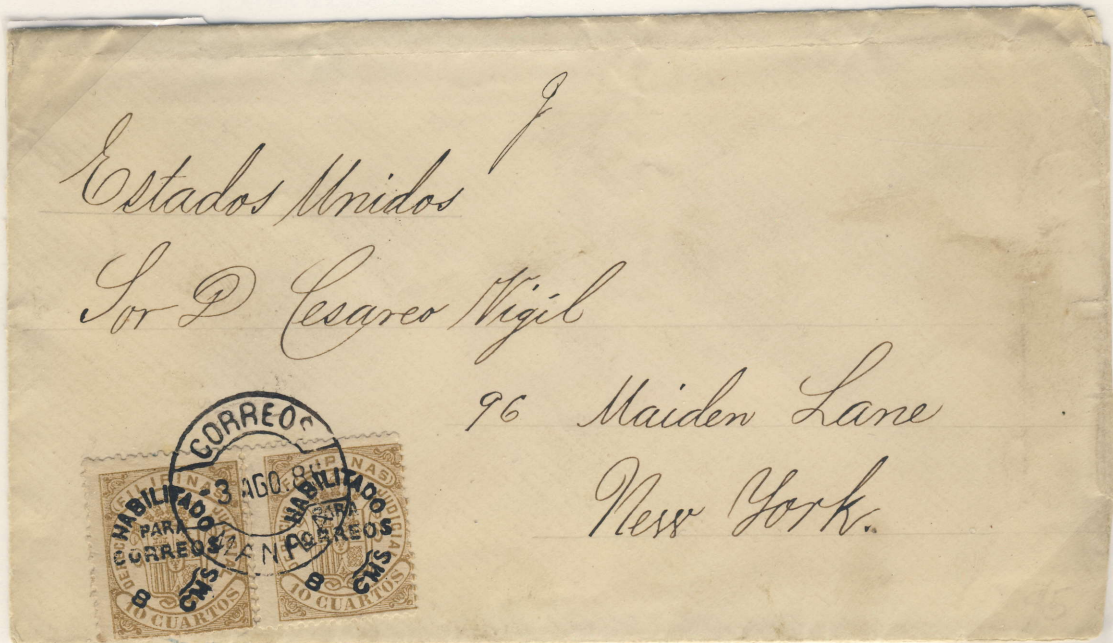 Estados Unidos
Sor D Cesareo Vigil
96 Maiden Lane
New York.
CORREOS
3 AGO. 8
MANILA
FILIPINAS
HABILITADO
PARA
CORREOS
8 CMS
10 CUARTOS
FILIPINAS
HABILITADO
PARA
CORREOS
8 CMS
10 CUARTOS